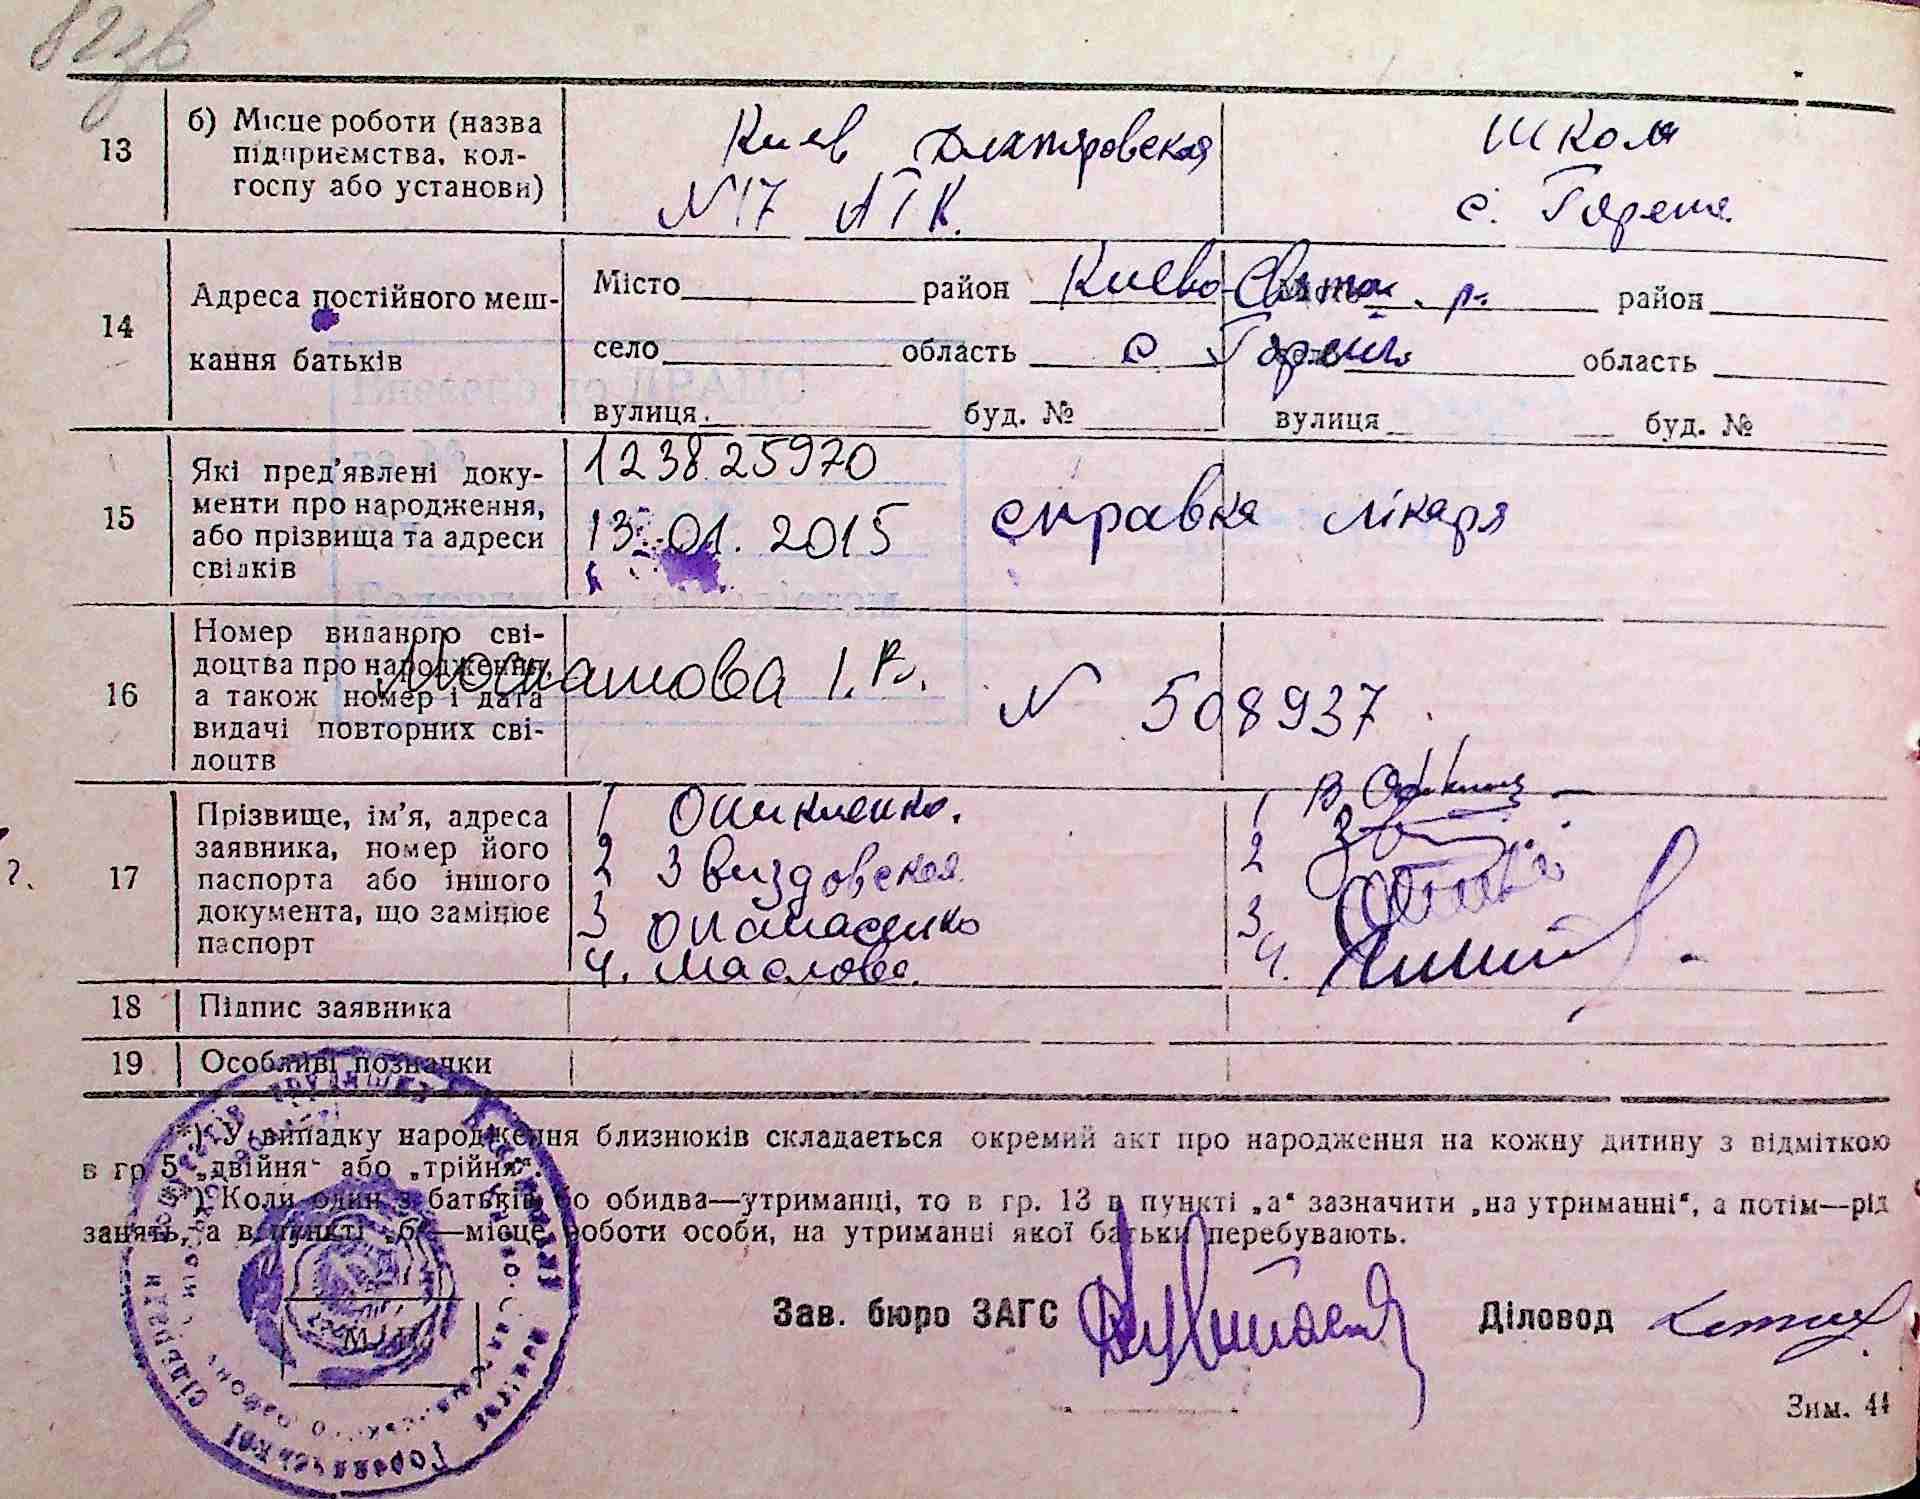 82зв
13 б) Місце роботи (назва підприємства, колгоспу або установи)
Киев Дехтяровская
N 17 АТК.
Школа
с. Горенка
14 Адреса постійного мешкання батьків
Місто район Киево-Святош. р. район
село область с Горенка область
вулиця буд. № вулиця буд. №
15 Які пред'явлені документи про народження, або прізвища та адреси свідків
123825970
13.01.2015 справка лікаря
16 Номер виданого свідоцтва про народження, а також номер і дата видачі повторних свідоцтв
І.В. N 508937
17 Прізвище, ім'я, адреса заявника, номер його паспорта або іншого документа, що замінює паспорт
1 Оникиенко. 1
2 Звиздовская 2
3 Опанасенко 3
4. Маслова. 4.
18 Підпис заявника
19 Особливі позначки
*) У випадку народження близнюків складається окремий акт про народження на кожну дитину з відміткою
в гр 5 „двійня“ або „трійня“.
**) Коли один з батьків або обидва—утриманці, то в гр. 13 в пункті „а“ зазначити „на утриманні“, а потім—рід
занять, а в пункті „б“—місце роботи особи, на утриманні якої батьки перебувають.
М. П.
Зав. бюро ЗАГС Діловод
Зим. 44